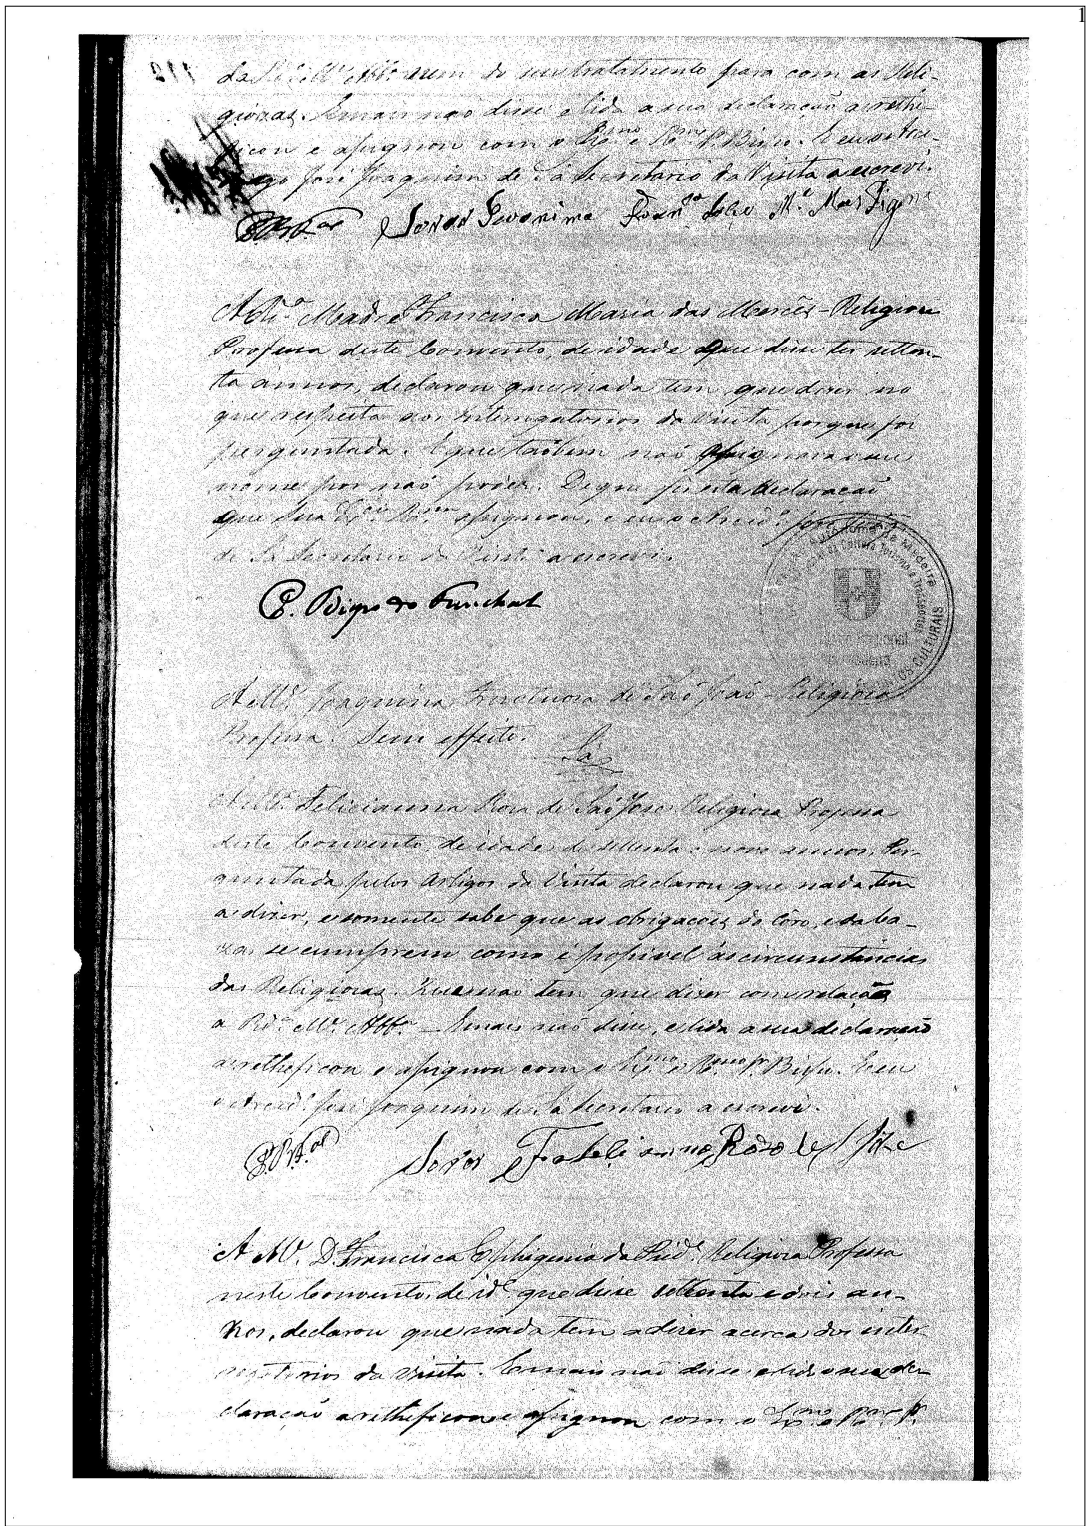 1
da R.da M.e Abb.a nem do seu tratamento para com as Reli-
giozas. E mais não disse e lida a sua declaração a rethe-
ficou e assignou com o Ex.mo e R.mo Sr. Bispo. E eu o Arce-
José Joaquim de Sá Secretario da Visita a escrevi.
Soror Jeronima
A R.da Madre Francisca Maria das Mercês - Religioza
Professa deste Convento, de idade que disse ter setten-
ta annos, declarou que nada tem que dizer no
que respeita aos interrogatorios da Visita, porque foi
perguntada. E que tãobem não assignava o seu
nome por não poder. De que fiz esta declaração
que Sua Ex.cia R.ma assignou, e eu o Arced.o José Joaq.
de Sá Secretario da Visita a escrevi.
Bispo do Funchal
CULTURAIS
A M.e Joaquina Fructuosa de São João - Religioza
Professa. Sem effeito.
Sá
A M.e Feliciana Rosa de São José Religioza Professa
deste Convento, de idade de settenta e nove annos. Per-
guntada pelos Artigos da Vizita declarou que nada tem
a dizer, e somente sabe que as obrigações do Côro, e da Ca-
za, se cumprem como é possivel ás circunstancias
das Religiozas. Que nao tem que dizer com relação
a R.da M.e Abb.a - E mais não disse, e lida a sua declaração
a rethificou e assignou com o Ex.mo e R.mo Sr. Bispo. E eu
o Arced.o José Joaquim de Sá Secretario a escrevi.
Soror Feleciana Roza de S José
A M.e D. Francisca Ephegenia da Pied.e Religioza Professa
neste Convento, de id.e que disse settenta e dois an-
nos, declarou que nada tem a dizer acerca dos inter-
rogatorios da Visita. E mais não disse e lida a sua de-
claração a rethificou e assignou com o Ex.mo e R.mo Sr.